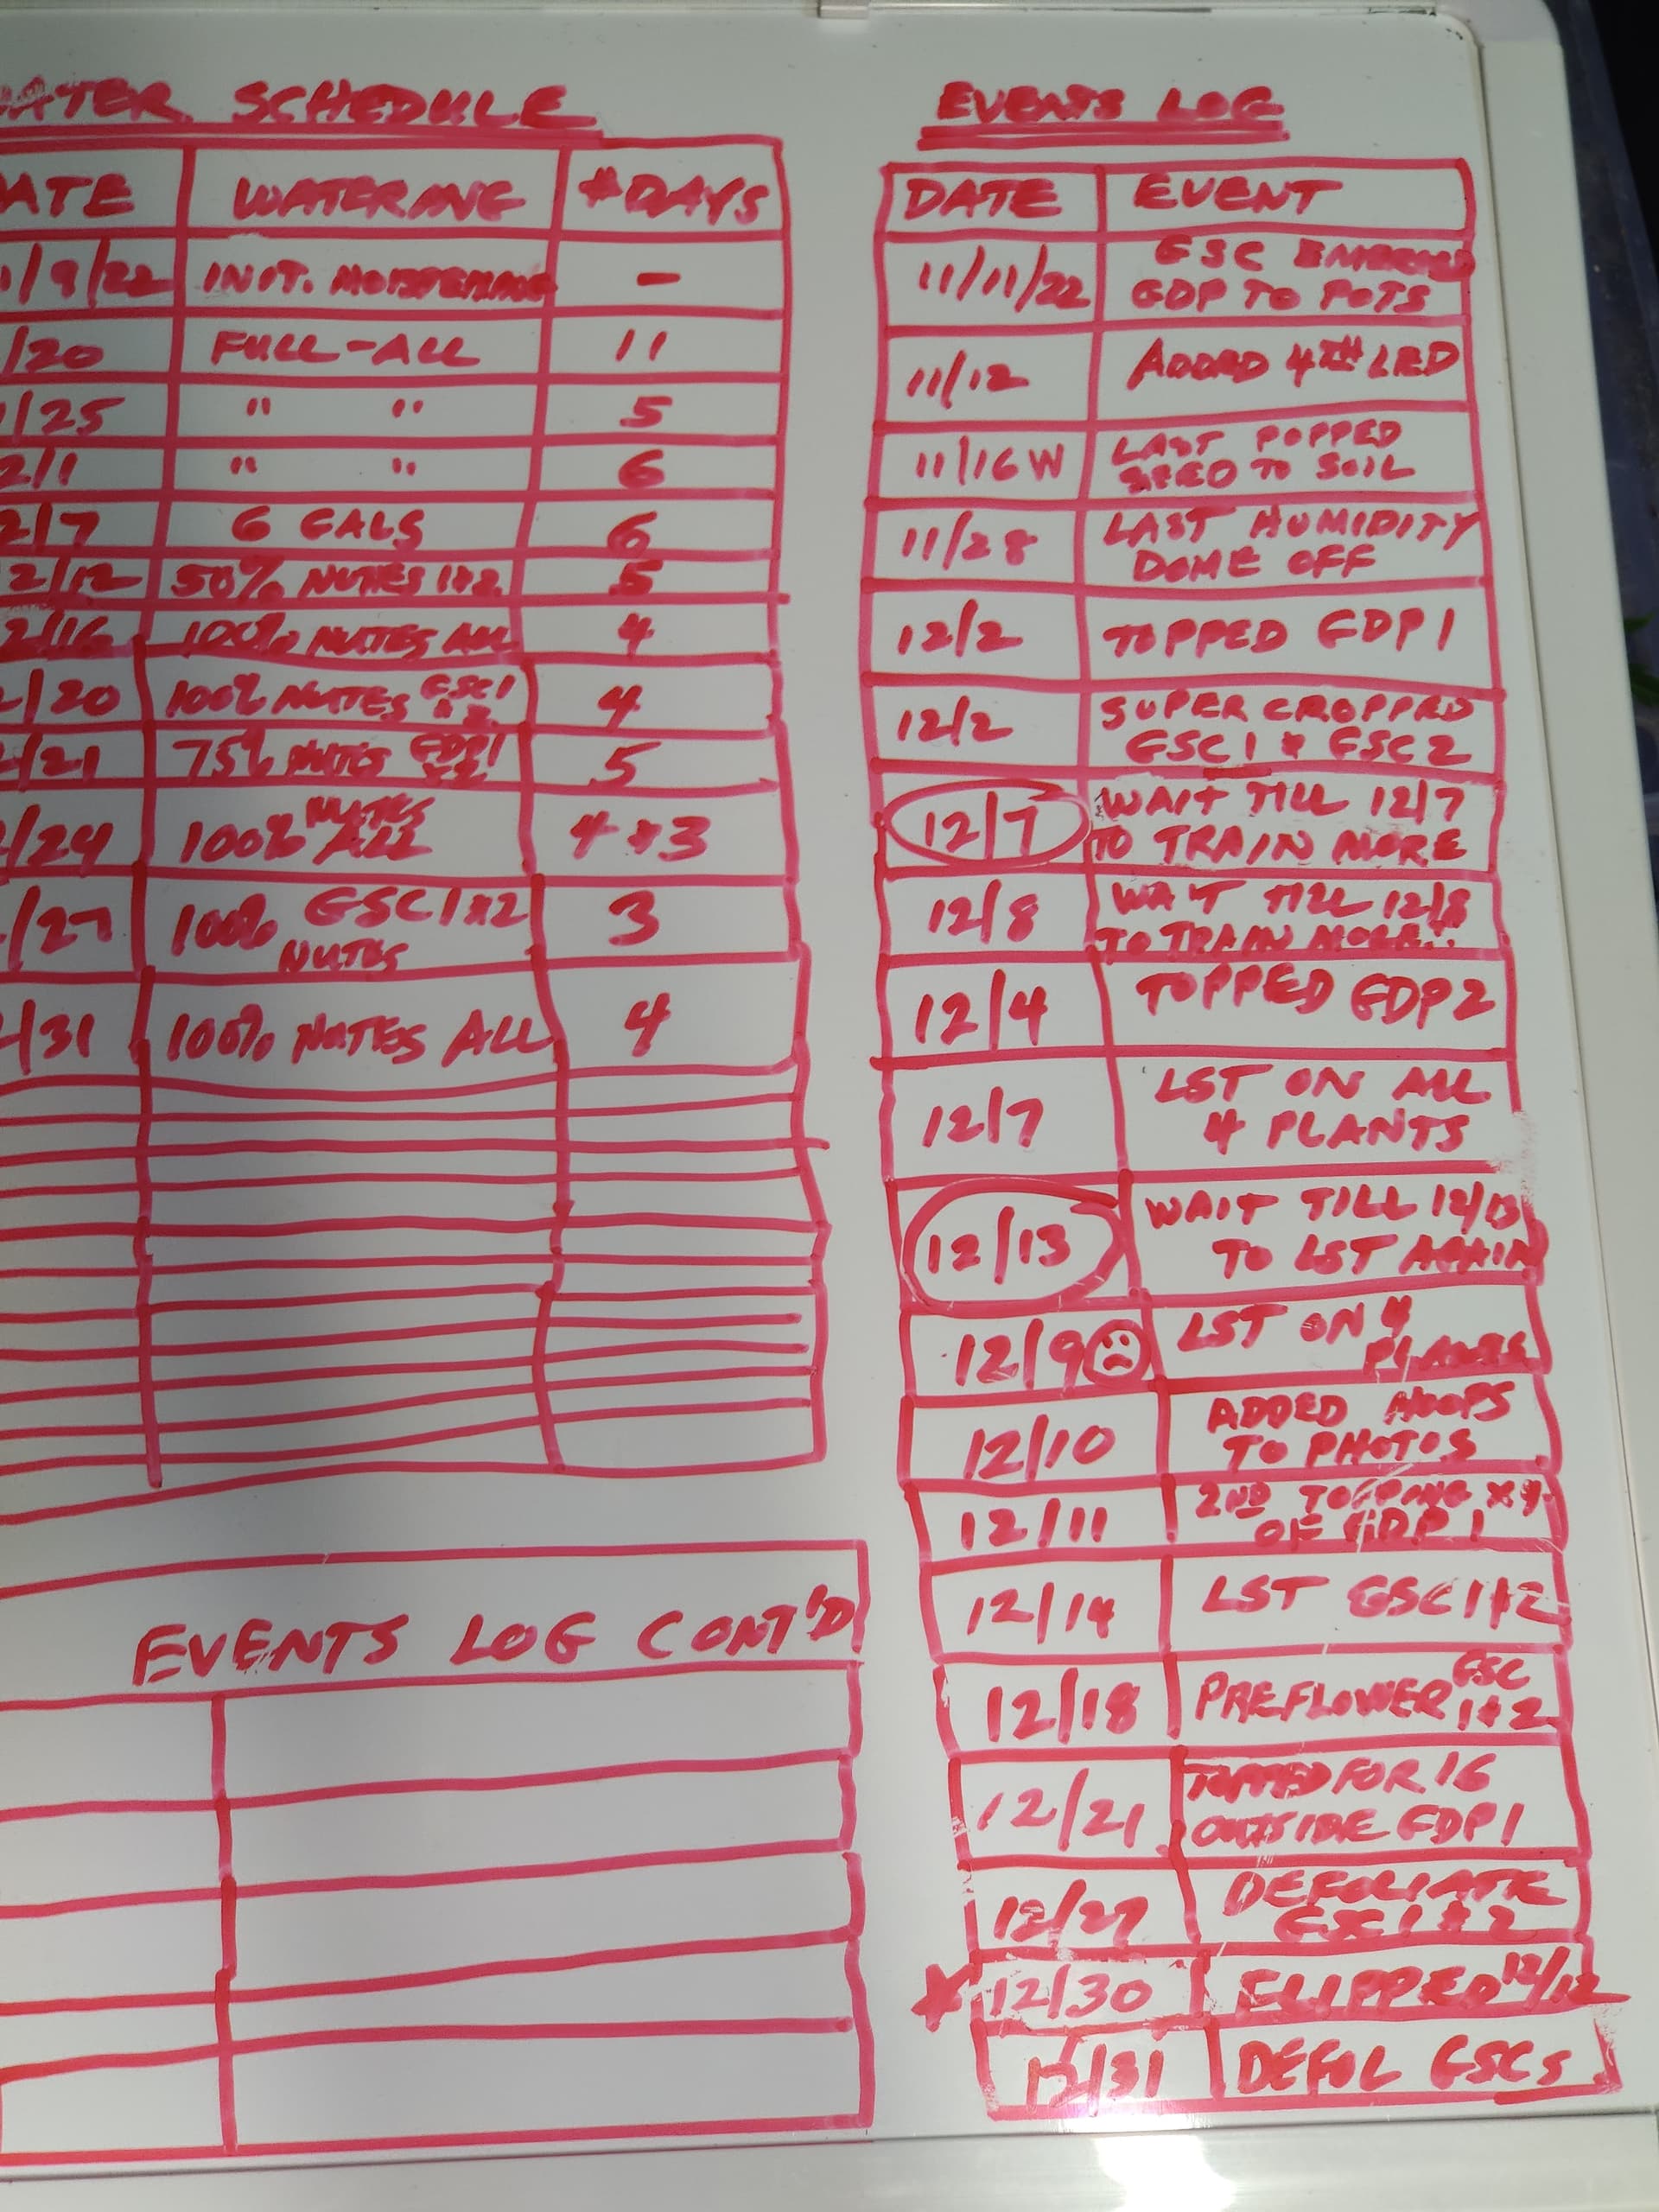 WATER SCHEDULE
DATE WATERING #DAYS
1/9/22 INIT. MOISTENING -
/20 FULL-ALL 11
1/25 " " 5
2/1 " " 6
2/7 6 GALS 6
2/12 50% NUTES 1+2 5
2/16 100% NUTES ALL 4
2/20 100% NUTES GSC1
+2 4
2/21 75% NUTES GDP1
+2 5
/24 100% NUTES
ALL 4+3
/27 100% GSC1+2
NUTES 3
/31 100% NUTES ALL 4
EVENTS LOG CONT'D
EVENTS LOG
DATE EVENT
11/11/22 GSC EMERGED
GDP TO POTS
11/12 ADDED 4TH LED
11/16 W LAST POPPED
SEED TO SOIL
11/28 LAST HUMIDITY
DOME OFF
12/2 TOPPED GDP1
12/2 SUPER CROPPED
GSC1 + GSC2
12/7 WAIT TILL 12/7
TO TRAIN MORE
12/8 WAIT TILL 12/8
TO TRAIN MORE!!
12/4 TOPPED GDP2
12/7 LST ON ALL
4 PLANTS
12/13 WAIT TILL 12/13
TO LST AGAIN
12/9 LST ON 4
PLANTS
12/10 ADDED HOOPS
TO PHOTOS
12/11 2ND TOPPING X4
OF GDP1
12/14 LST GSC1+2
12/18 PREFLOWER GSC
1+2
12/21 TOPPED FOR 16
OUTSIDE GDP1
12/27 DEFOLIATE
GSC1+2
12/30 FLIPPED 12/12
12/31 DEFOL GSCs